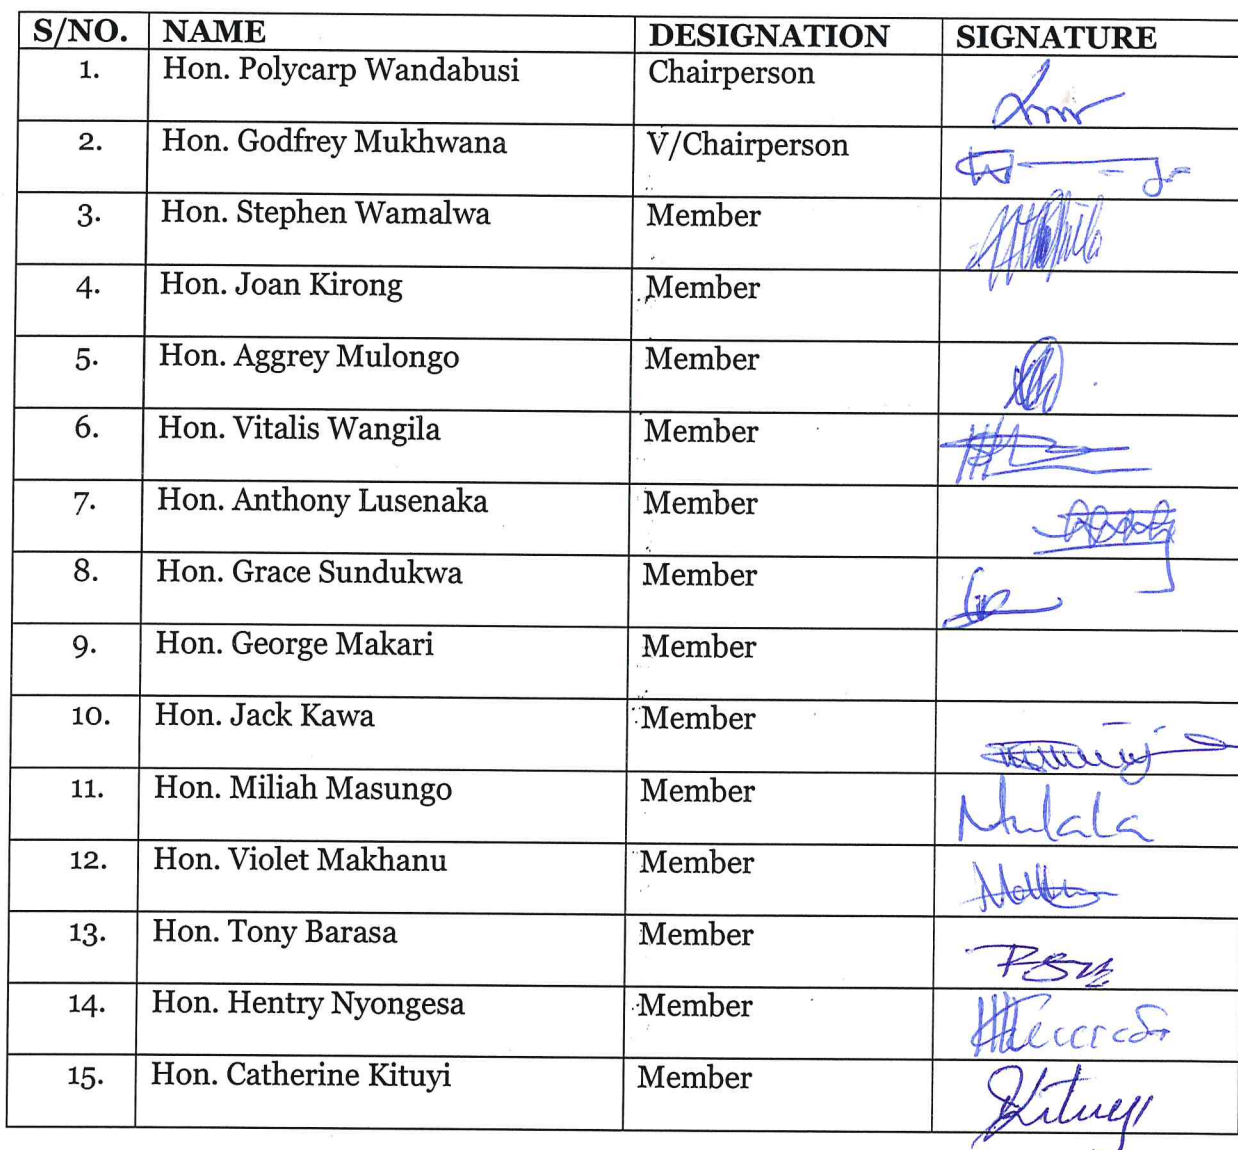 S/NO. NAME DESIGNATION SIGNATURE
1. Hon. Polycarp Wandabusi Chairperson
2. Hon. Godfrey Mukhwana V/Chairperson
3. Hon. Stephen Wamalwa Member
4. Hon. Joan Kirong Member
5. Hon. Aggrey Mulongo Member
6. Hon. Vitalis Wangila Member
7. Hon. Anthony Lusenaka Member
8. Hon. Grace Sundukwa Member
9. Hon. George Makari Member
10. Hon. Jack Kawa Member
11. Hon. Miliah Masungo Member
12. Hon. Violet Makhanu Member
13. Hon. Tony Barasa Member
14. Hon. Hentry Nyongesa Member
15. Hon. Catherine Kituyi Member Kituyi